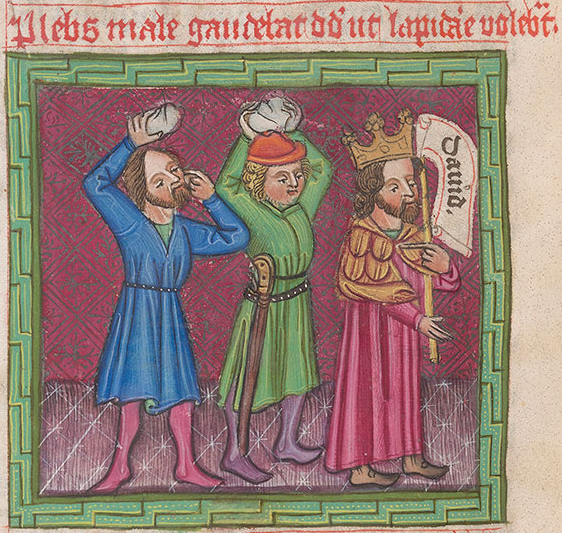 Plebs male gaudebat dd̄ ut lapidāe volebt̄.
david.